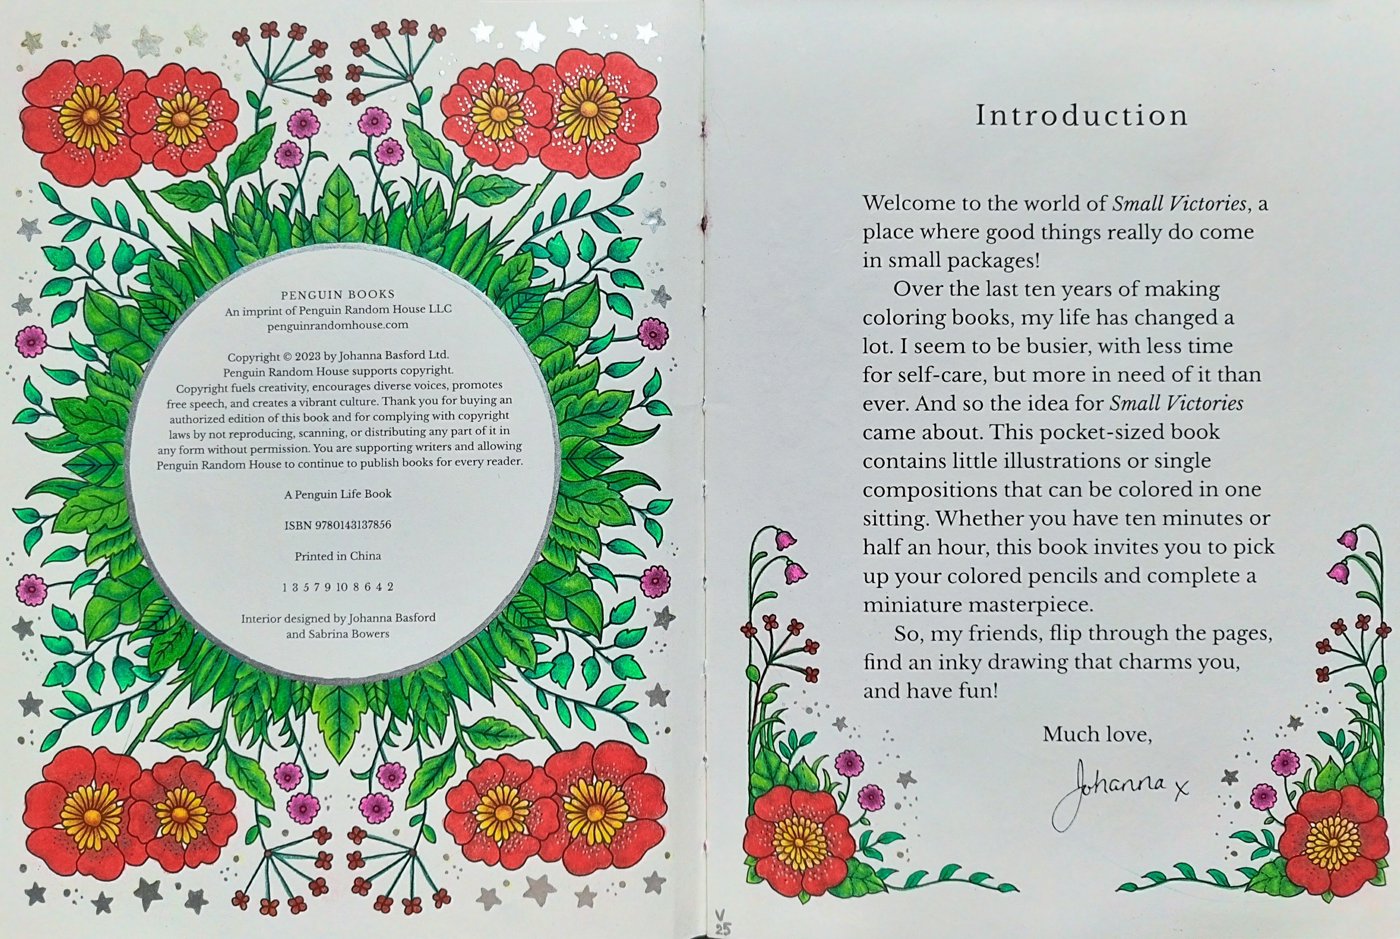 PENGUIN BOOKS
An imprint of Penguin Random House LLC
penguinrandomhouse.com
Copyright © 2023 by Johanna Basford Ltd.
Penguin Random House supports copyright.
Copyright fuels creativity, encourages diverse voices, promotes
free speech, and creates a vibrant culture. Thank you for buying an
authorized edition of this book and for complying with copyright
laws by not reproducing, scanning, or distributing any part of it in
any form without permission. You are supporting writers and allowing
Penguin Random House to continue to publish books for every reader.
A Penguin Life Book
ISBN 9780143137856
Printed in China
1 3 5 7 9 10 8 6 4 2
Interior designed by Johanna Basford
and Sabrina Bowers
Introduction
Welcome to the world of Small Victories, a
place where good things really do come
in small packages!
Over the last ten years of making
coloring books, my life has changed a
lot. I seem to be busier, with less time
for self-care, but more in need of it than
ever. And so the idea for Small Victories
came about. This pocket-sized book
contains little illustrations or single
compositions that can be colored in one
sitting. Whether you have ten minutes or
half an hour, this book invites you to pick
up your colored pencils and complete a
miniature masterpiece.
So, my friends, flip through the pages,
find an inky drawing that charms you,
and have fun!
Much love,
Johanna x
V
25